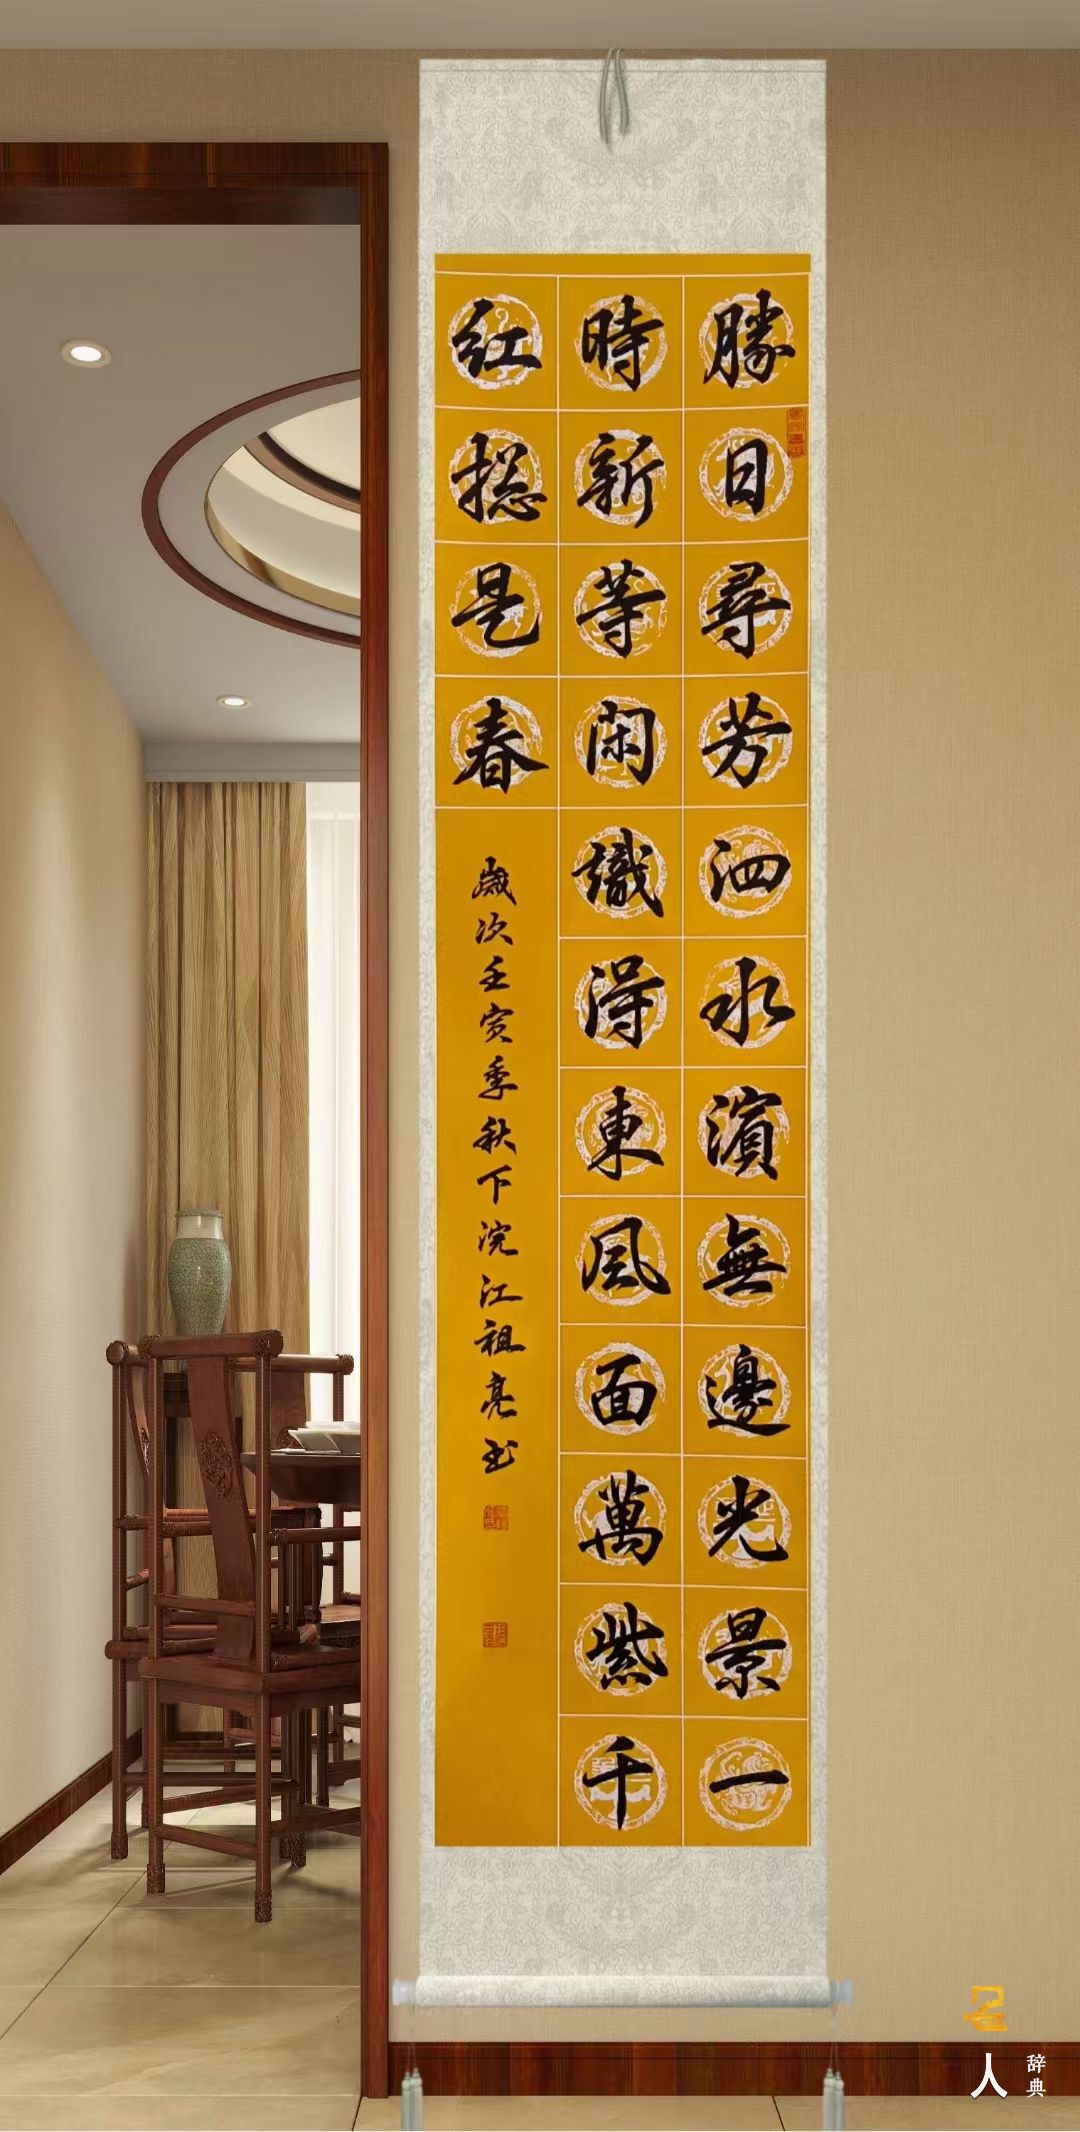 勝日尋芳泗水濱無邊光景一
時新等閑識得東風面萬紫千
红捴是春
歲次壬寅季秋下浣江祖亮书
名
人
辞典